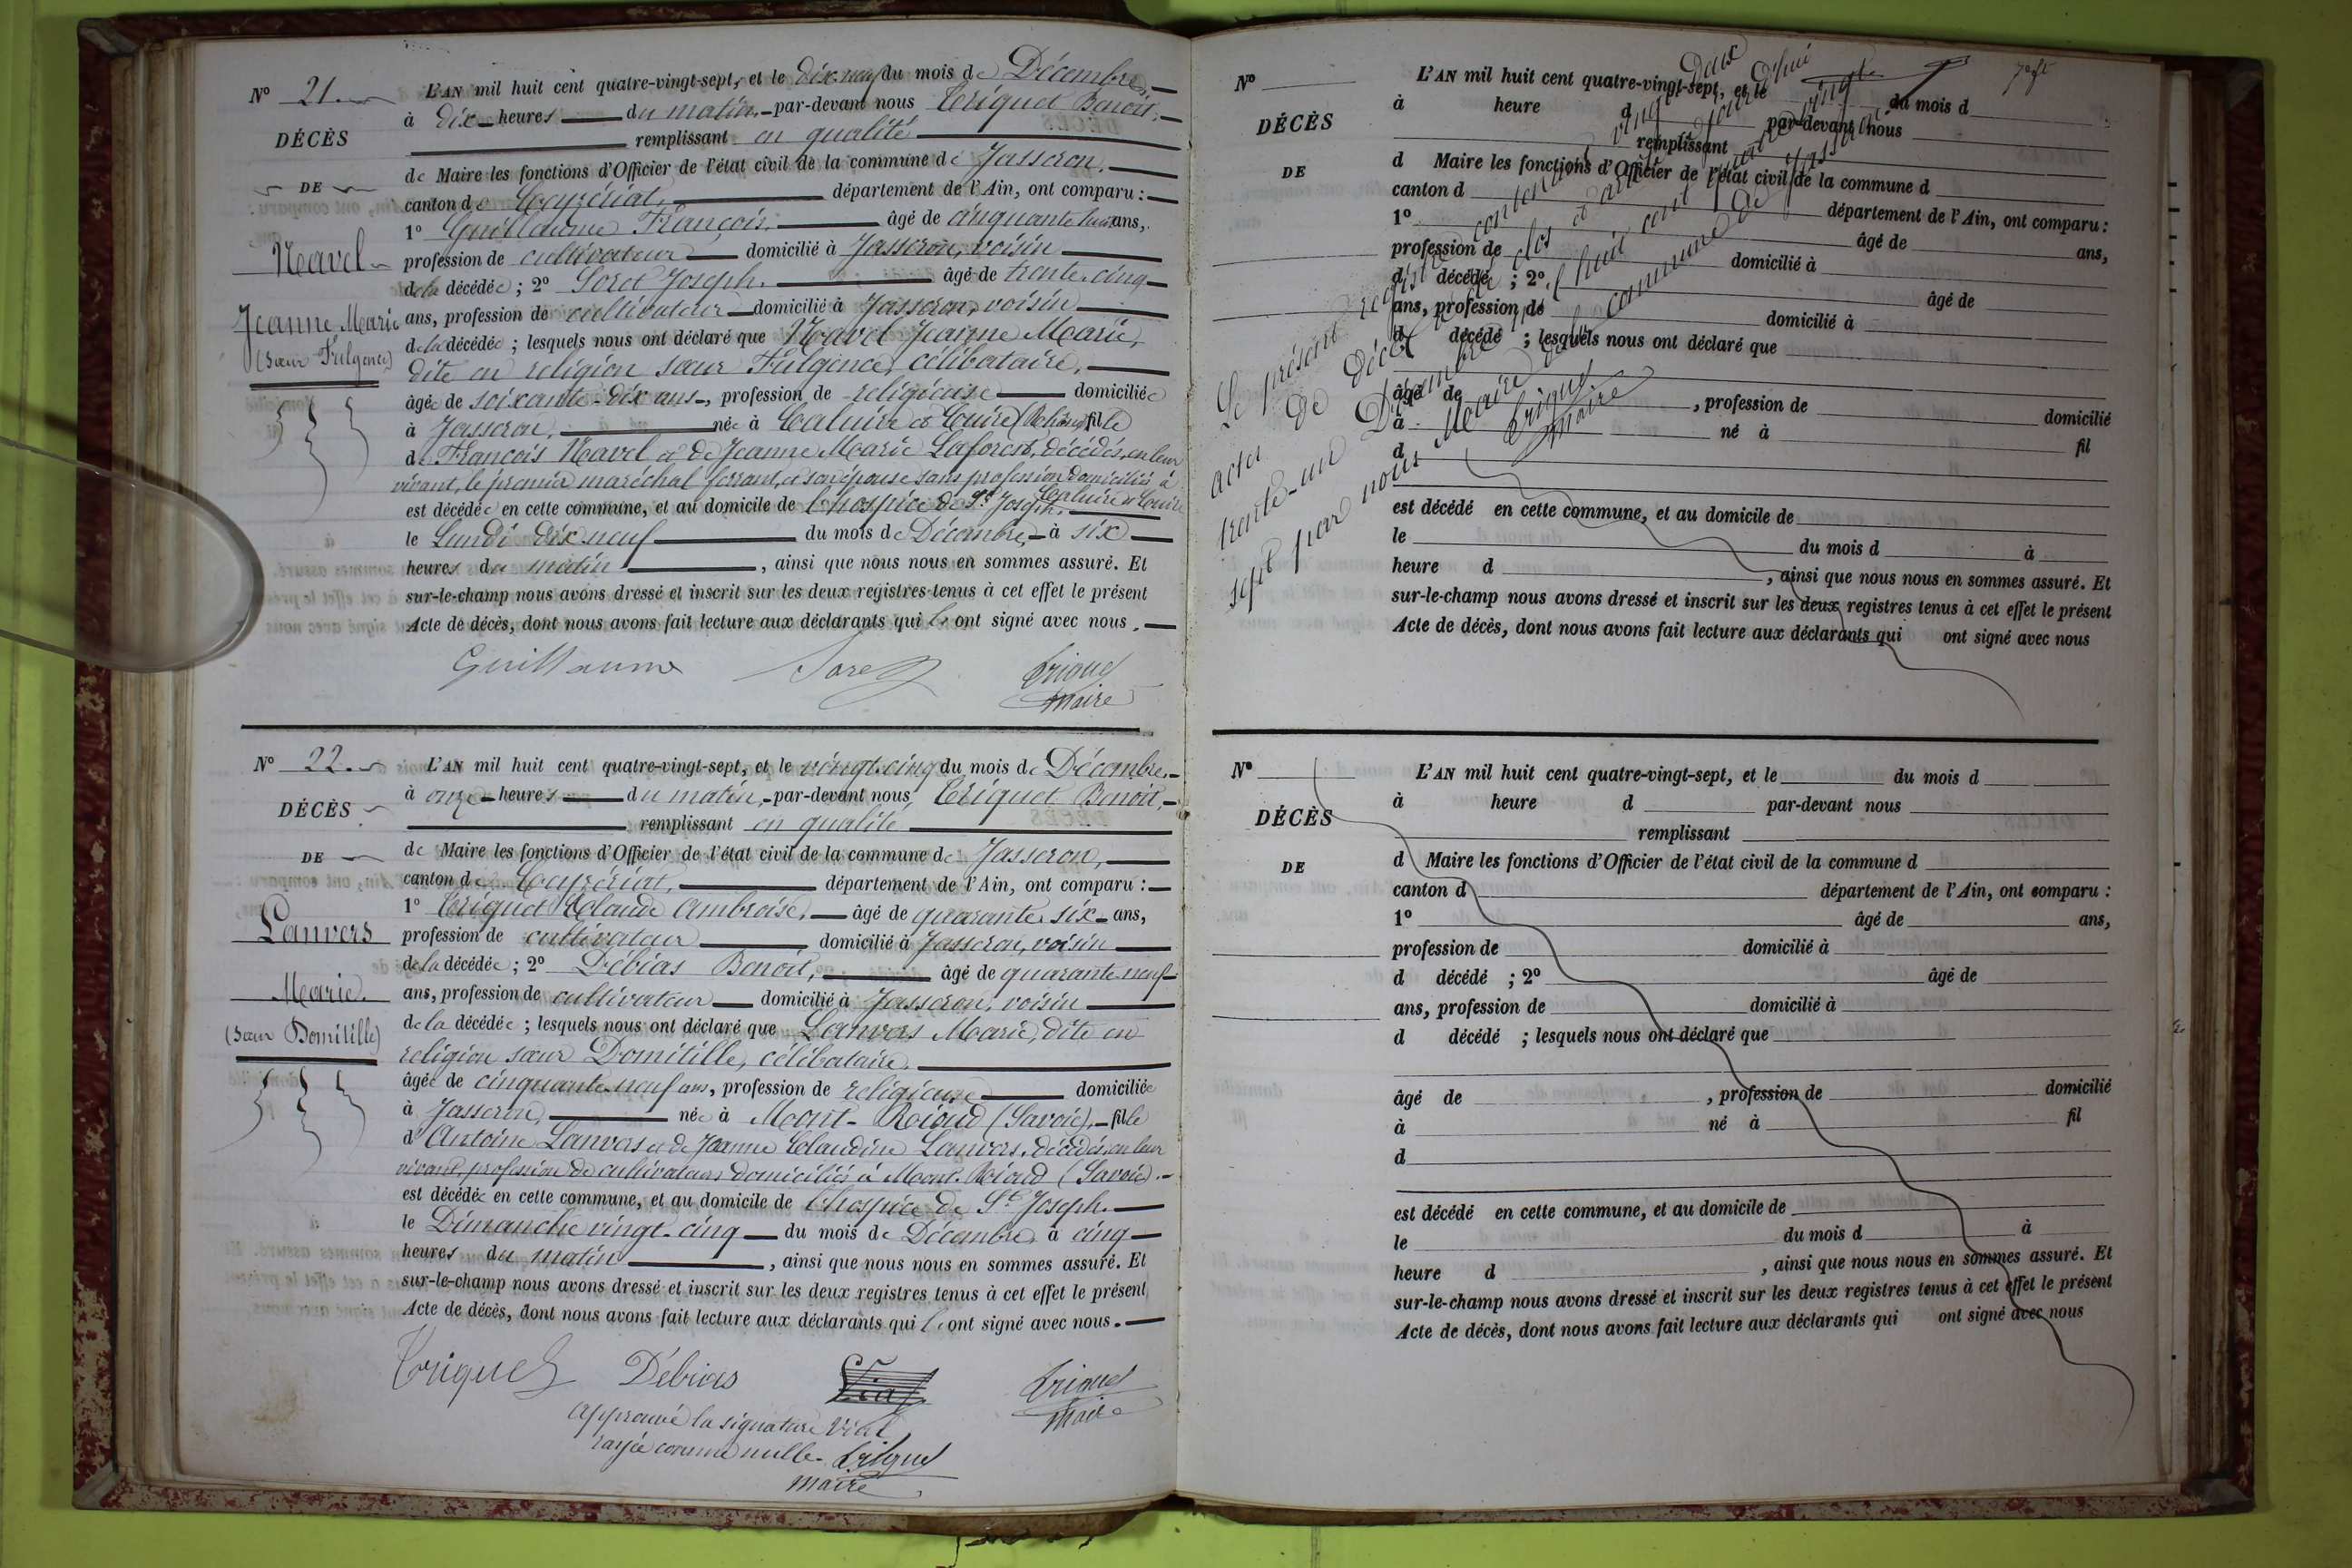 N° 21.
DÉCÈS
DE
Navel
Jeanne Marie
(Sœur Fulgence)
L'AN mil huit cent quatre-vingt-sept, et le dix-neuf du mois de Décembre,
à dix heures du matin, par-devant nous Triquet Benoit,
remplissant en qualité
de Maire les fonctions d'Officier de l'état civil de la commune de Jasseron,
canton de Ceyzériat, département de l'Ain, ont comparu :
1° Guillaume François, âgé de cinquante huit ans,
profession de cultivateur domicilié à Jasseron, voisin
de la décédée ; 2° Soret Joseph, âgé de trente-cinq
ans, profession de cultivateur domicilié à Jasseron, voisin
de la décédée ; lesquels nous ont déclaré que Navel Jeanne Marie,
dite en religion sœur Fulgence, célibataire,
âgée de soixante-dix ans, profession de religieuse domiciliée
à Jasseron, née à Caluire et Cuire (Rhône) fille
de François Navel et de Jeanne Marie Laforest, décédés, en leur
vivant, le premier maréchal ferrant, et son épouse sans profession domiciliés à
Caluire et Cuire
est décédée en cette commune, et au domicile de l'hospice de St Joseph,
le Lundi dix-neuf du mois de Décembre, à six
heures du matin, ainsi que nous nous en sommes assuré. Et
sur-le-champ nous avons dressé et inscrit sur les deux registres tenus à cet effet le présent
Acte de décès, dont nous avons fait lecture aux déclarants qui l'ont signé avec nous.
Guillaume Soret Triquet
Maire
N° 22.
DÉCÈS
DE
Lanvers
Marie.
(Sœur Domitille)
L'AN mil huit cent quatre-vingt-sept, et le vingt-cinq du mois de Décembre,
à onze heures du matin, par-devant nous Triquet Benoit,
remplissant en qualité
de Maire les fonctions d'Officier de l'état civil de la commune de Jasseron,
canton de Ceyzériat, département de l'Ain, ont comparu :
1° Triquet Claude Ambroise, âgé de quarante-six ans,
profession de cultivateur domicilié à Jasseron, voisin
de la décédée ; 2° Débias Benoit, âgé de quarante neuf
ans, profession de cultivateur domicilié à Jasseron, voisin
de la décédée ; lesquels nous ont déclaré que Lanvers Marie, dite en
religion sœur Domitille, célibataire,
âgée de cinquante-neuf ans, profession de religieuse domiciliée
à Jasseron, née à Mont-Rioud (Savoie), fille
d'Antoine Lanvers et de Jeanne Claudine Lanvers, décédés, en leur
vivant profession de cultivateurs domiciliés à Mont-Rioud (Savoie).
est décédée en cette commune, et au domicile de l'hospice de St Joseph.
le Dimanche vingt-cinq du mois de Décembre à cinq
heures du matin, ainsi que nous nous en sommes assuré. Et
sur-le-champ nous avons dressé et inscrit sur les deux registres tenus à cet effet le présent
Acte de décès, dont nous avons fait lecture aux déclarants qui l'ont signé avec nous.
Triquet Débias Vial Triquet
Maire
Approuvé la signature Vial
rayée comme nulle. Triquet
Maire
N°
DÉCÈS
DE
L'AN mil huit cent quatre-vingt-sept, et le du mois d
à heure d par-devant nous
remplissant
d Maire les fonctions d'Officier de l'état civil de la commune d
canton d département de l'Ain, ont comparu :
1° âgé de ans,
profession de domicilié à
d décédé ; 2° âgé de
ans, profession de domicilié à
d décédé ; lesquels nous ont déclaré que
âgé de , profession de domicilié
à né à fil
d
est décédé en cette commune, et au domicile de
le du mois d à
heure d , ainsi que nous nous en sommes assuré. Et
sur-le-champ nous avons dressé et inscrit sur les deux registres tenus à cet effet le présent
Acte de décès, dont nous avons fait lecture aux déclarants qui ont signé avec nous
Le présent registre contenant vingt deux
actes de décès clos et arrêté aujourd'hui
trente-un Décembre mil huit cent quatre vingt
sept par nous Maire de la commune de Jasseron.
Triquet
Maire
N°
DÉCÈS
DE
L'AN mil huit cent quatre-vingt-sept, et le du mois d
à heure d par-devant nous
remplissant
d Maire les fonctions d'Officier de l'état civil de la commune d
canton d département de l'Ain, ont comparu :
1° âgé de ans,
profession de domicilié à
d décédé ; 2° âgé de
ans, profession de domicilié à
d décédé ; lesquels nous ont déclaré que
âgé de , profession de domicilié
à né à fil
d
est décédé en cette commune, et au domicile de
le du mois d à
heure d , ainsi que nous nous en sommes assuré. Et
sur-le-champ nous avons dressé et inscrit sur les deux registres tenus à cet effet le présent
Acte de décès, dont nous avons fait lecture aux déclarants qui ont signé avec nous